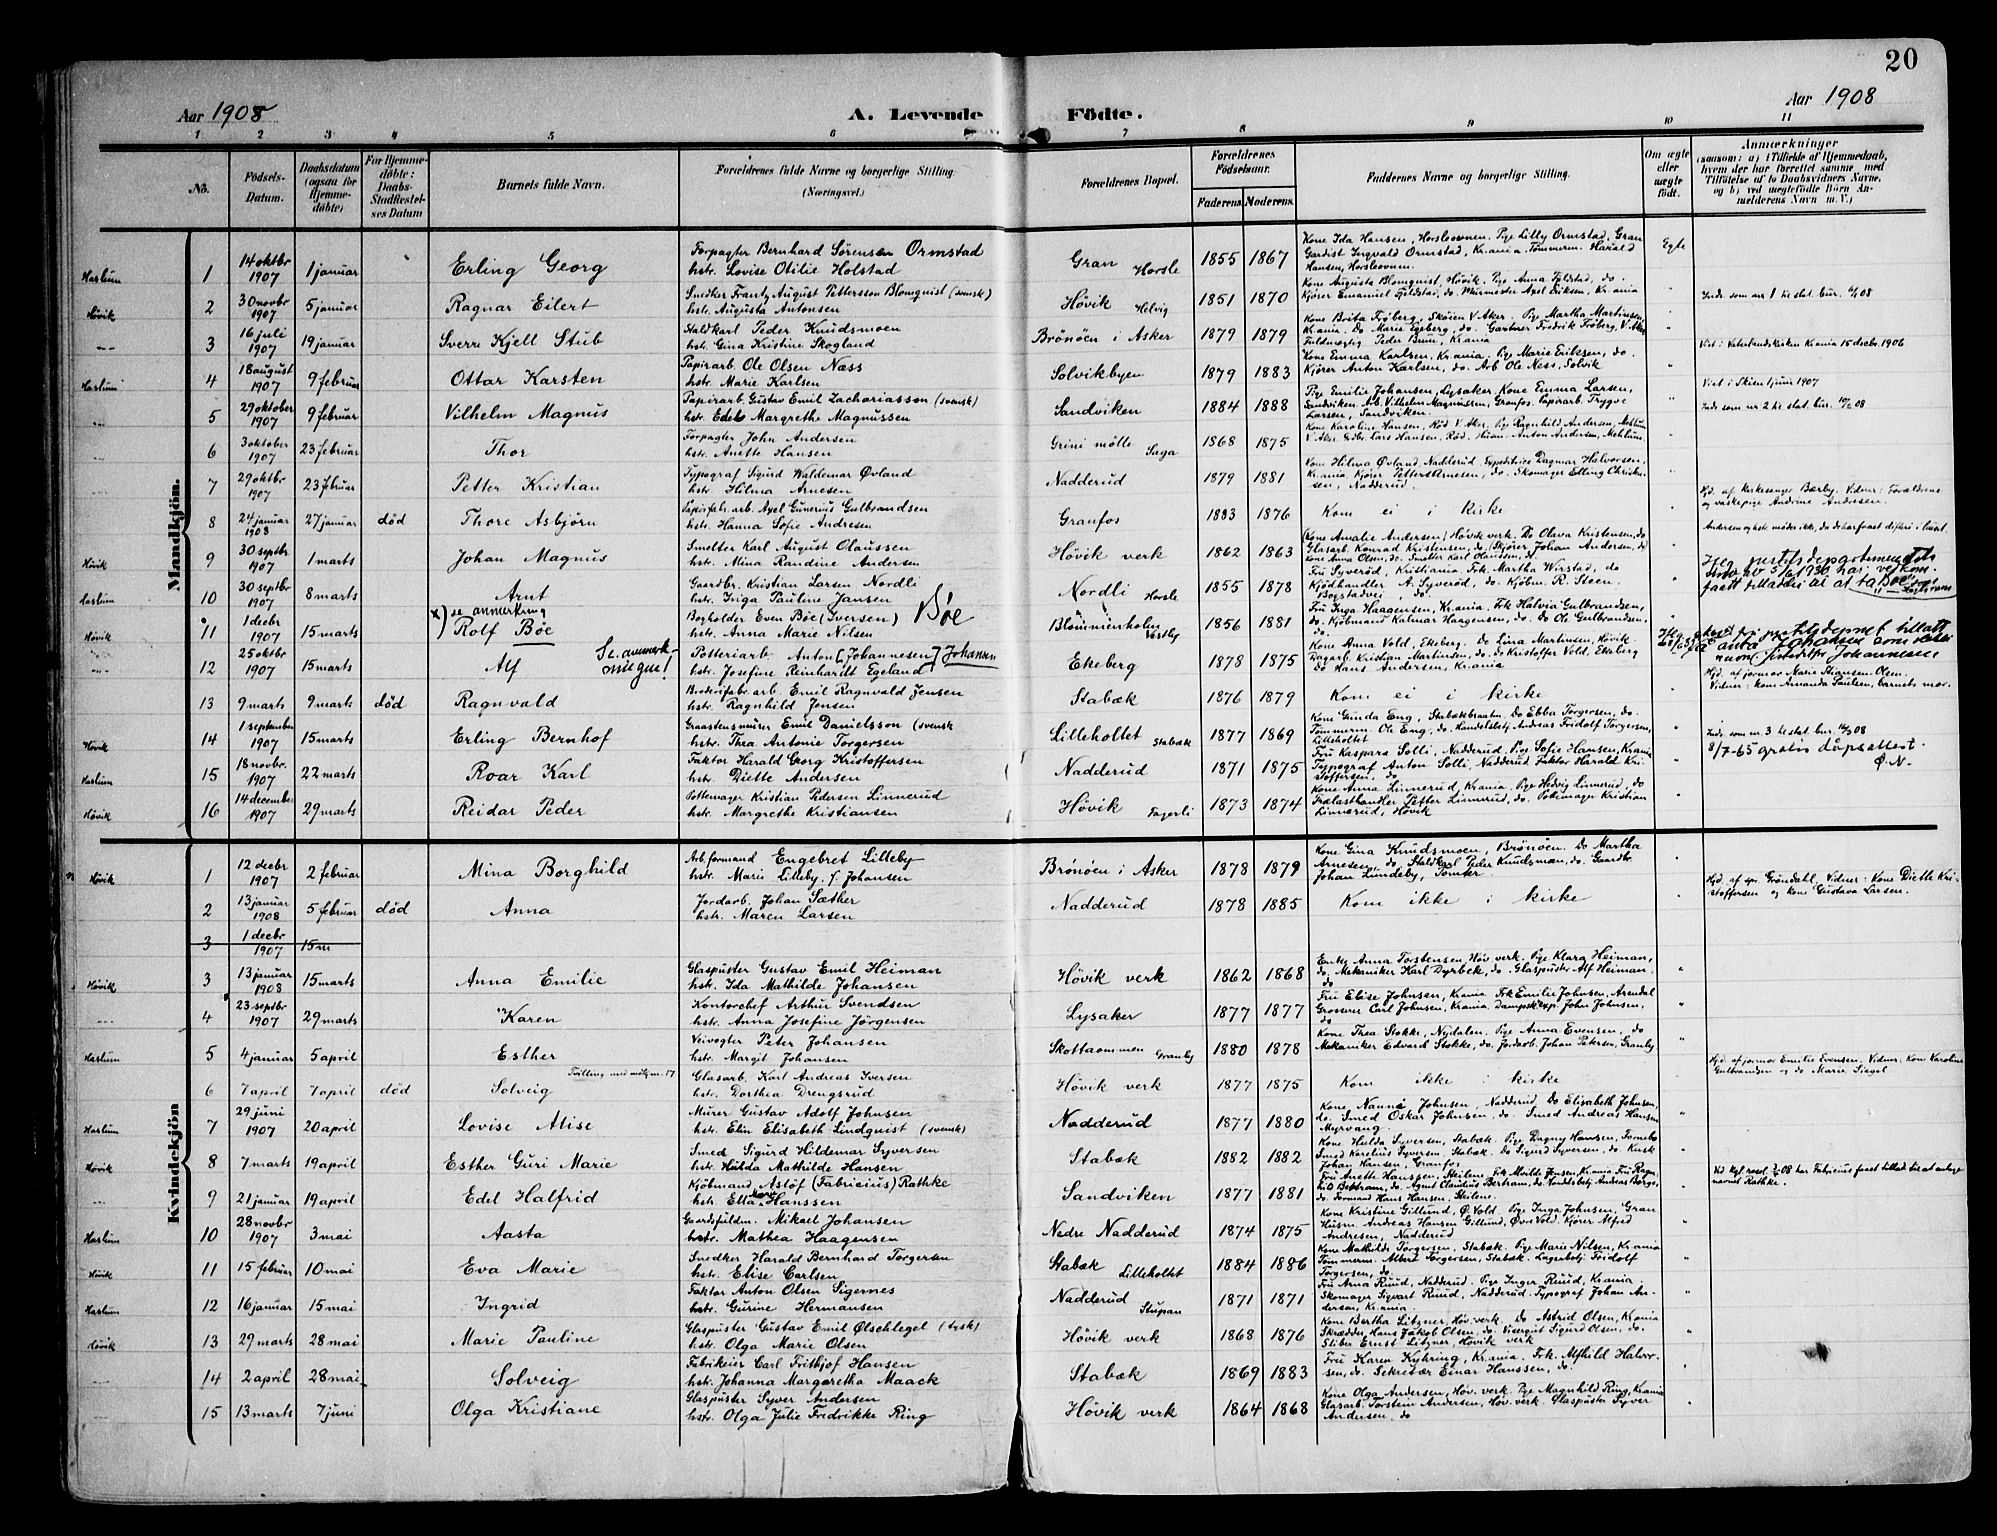 20
Aar 1908
A. Levende Födte.
Aar 1908
1 2 3 4 5 6 7 8 9 10 11
No.
Födsels-Datum.
Daabsdatum (ogsaa for Hjemme-döbte)
For Hjemme-döbte: Daabs-Stadfæstel-ses Datum
Barnets fulde Navn.
Forældrenes fulde Navne og borgerlige Stilling. (Næringsvei.)
Forældrenes Bopæl.
Forældrenes Födselsaar.
Faderens. Moderens.
Faddernes Navne og borgerlige Stilling.
Om ægte eller uægte födt.
Anmærkninger
(saasom: a) i Tilfælde af Hjemmedaab, hvem der har forrettet samme, med Tilföielse af to Daabsvidners Navne, og b) ved uægtefödte Börn An-melderens Navn m. V.)
Mandkjön.
Haslum 1 14 oktbr 1907 1 januar Erling Georg
Forpagter Bernhard Sörensen Ormstad
hstr. Lovise Otilie Holstad
Gran Horsle 1855 1867
Kone Ida Hansen, Horsleovnen. Pige Lilly Ormstad, Gran
Gardist Ingvald Ormstad, Krania. Tömmerm. Harald
Hansen, Horsleovnen.
Egte
Hövik 2 30 novbr 1907 5 januar Ragnar Eilert
Snedker Frantz August Pettersson Blomquist (svensk)
hstr. Augusta Antonsen
Hövik Helvig 1851 1870
Kone Augusta Blomquist, Hövik. Pige Anna Fjeldstad, do.
Kjörer Emanuel Fjeldstad, do. Murmester Axel Eriksen, Krania
Inds. som nr 1 he stat. bur.
3 16 juli 1907 19 januar Sverre Kjell Stub
Staldkarl Peder Knudsmoen
hstr. Gina Kristine Skogland
Brönöen i Asker 1879 1879
Kone Brita Fröberg, Sköien V. Aker. Pige Martha Martinsen,
Krania. Do Marie Egeberg, do. Gartner Fredrik Fröberg, V. Aker
Fuldmægtig Peder Bruu, Krania
Viet i Vaterlandskirken Krania 15 decbr. 1906
Haslum 4 18 august 1907 9 februar Ottar Karsten
Papirarb. Ole Olsen Næss
hstr. Marie Karlsen
Solvikbyen 1879 1883
Kone Emma Karlsen, Krania. Pige Marie Eriksen, do.
Kjörer Anton Karlsen, do. Arb Ole Ness, Solvik
Viet i Skien 1 juni 1907
5 29 oktober 1907 9 februar Vilhelm Magnus
Papirarb. Gustav Emil Zachariasson (svensk)
hstr. Edel Margrethe Magnussen
Sandviken 1884 1888
Pige Emilie Johansen, Lysaker. Kone Emma Larsen,
Sandviken. Arb. Vilhelm Magnussen, Granfos. Papirarb. Trygve
Larsen, Sandviken.
Inds. som nr 2 he stat. bur.
6 3 oktober 1907 23 februar Thor
Forpagter John Andersen
hstr. Anette Hansen
Grini mölle Saga 1868 1875
Kone Karoline Hansen, Röd V. Aker. Pige Ragnhild Andersen, Mehlum
V. Aker. Gdbr. Lars Hansen, Röd. Husm. Anton Andersen, Mehlum.
7 29 oktbr 1907 23 februar Petter Kristian
Typograf Sigurd Waldemar Øvland
hstr. Hilma Arnesen
Nadderud 1879 1881
Kone Hilma Øvland, Nadderud. Expeditrice Dagmar Halvorsen,
Krania. Kjörer Petter Arnesen, do. Skomager Elling Christian-
sen, Nadderud.
8 24 januar 1908 27 januar död Thore Asbjörn
Papirfab. arb. Axel Gunerius Gulbrandsen
hstr. Hanna Sofie Andresen
Granfos 1883 1876
Kom ei i kirke
Hjd. af Kirkesanger Bærby. Vidner: Forældrene
og vaskepige Andrine Andresen.
Hövik 9 30 septbr 1907 1 marts Johan Magnus
Smelter Karl August Olaussen
hstr. Mina Randine Andersen
Hövik verk 1862 1863
Kone Amalie Andersen, Hövik verk. Do Olava Kristensen, do
Glasarb. Konrad Kristensen, do. Skjörer Johan Andersen, do
Kone Anna Olsen, do. Smelter Karl Olaussen, do.
Haslum 10 30 septbr 1907 8 marts Arnt
Gaardbr. Kristian Larsen Nordli
hstr. Inga Pauline Jansen
Nordli Horsle 1855 1878
Fru Syveröd, Kristiania. Frk. Martha Wirstad, do
Kjödhandler A. Syveröd, do. Kjöbm. R. Steen,
Bogstadvei, do.
Hövik 11 1 decbr 1907 15 marts
x) se anmerkning
Rolf Böe
Bogholder Even Böe (Iversen) Böe
hstr. Anna Marie Nilsen
Blommenholm Vestby 1856 1881
Fru Inga Haagensen, Krania. Frk Halvia Gulbrandsen,
do. Kjöbmand Kalmar Haagensen, do. Do Ole Gulbrandsen,
do.
12 25 oktbr 1907 15 marts Alf
Se anmerk-
ningen!
Potteriarb. Anton [Johannesen] Johansen
hstr. Josefine Reinhardt Egeland
Ekeberg 1878 1875
Kone Anna Vold, Ekeberg. Do Lina Martinsen, Hövik.
Dagarb. Kristian Martinsen, do. Do Kristoffer Vold, Ekeberg
Do Hans Andersen, Krania
13 9 marts 9 marts död Ragnvald
Broderifabr. arb. Emil Ragnvald Jensen
hstr. Ragnhild Jensen
Stabæk 1876 1879
Kom ei i kirke
Hjd. af jormor Marie Stiansen-Olsen.
Vidner: kone Amanda Paulsen, barnets mor.
Hövik 14 1 september 1907 15 marts Erling Bernhof
Graastensmurer Emil Danielsson (svensk
hstr. Thea Antonie Torgersen
Lilleholtet Stabæk 1877 1869
Kone Gunda Eng, Stabækbraaten. Do Ebba Torgersen, do.
Tömmerm. Ole Eng, do. Handelsbetj. Andreas Fridolf Torgersen,
Lilleholtet
Inds. som nr. 3 he stat. bur.
8/7-65 gratis dåpsattest.
Ø. N-
Haslum 15 18 novbr. 1907 22 marts Roar Karl
Faktor Harald Georg Kristoffersen
hstr. Diette Andersen
Nadderud 1871 1875
Fru Kaspara Solli, Nadderud. Pige Sofie Hansen, Krania
Typograf Anton Solli, Nadderud. Faktor Harald Kri-
stoffersen, do
Hövik 16 14 december 1907 29 marts Reidar Peder
Pottemager Kristian Pedersen Linnerud
hstr. Margrethe Kristiansen
Hövik Fagerli 1873 1874
Kone Anna Linnerud, Krania. Pige Hedvig Linnerud, do
Trælasthandler Petter Linnerud, do. Pottemager Kristian
Linnerud, Hövik
Kvindekjön
Hövik 1 12 decbr 1907 2 februar Mina Borghild
Arb. formand Engebret Lilleby
hstr. Marie Lilleby f. Johansen
Brönöen i Asker 1878 1879
Kone Gina Knudsmoen, Brönöen. Do Martha
Arnesen, do. Staldkarl Peder Knudsmoen, do. Gaardbr.
Johan Lundeby, Tomter
2 13 januar 1908 5 februar död Anna
Jordarb. Johan Sæther
hstr. Maren Larsen
Nadderud 1878 1885
Kom ikke i kirke
Hjd. af spr. Gröndahl. Vidner: Kone Diette Kri-
stoffersen og kone Gustava Larsen.
3 1 decbr 1907 15 m
Hövik 3 13 januar 1908 15 marts Anna Emilie
Glaspuster Gustav Emil Heiman
hstr. Ida Mathilde Johansen
Hövik verk 1862 1868
Enke Anna Torstensen, Höv. verk. Pige Klara Heiman,
do. Mekaniker Karl Dyrbek, do. Glaspuster Alf Heiman,
do
4 23 septbr 1907 29 marts Karen
Kontorchef Arthur Svendsen
hstr. Anna Josefine Jörgensen
Lysaker 1877 1877
Fru Elise Johnsen, Krania. Frk Emilie Johnsen, Arendal
Grosserer Carl Johnsen, Krania. Dampskexp. John Johnsen,
do
Haslum 5 4 januar 5 april Esther
Veivogter Peter Johansen
hstr. Margit Johansen
Skottaommen Granby 1880 1878
Kone Thea Stokke, Nydalen. Pige Anna Evensen, do
Mekaniker Edvard Stokke, do. Jordarb. Johan Petersen, Granby
6 7 april 7 april död
Tvilling med m. 17
Solveig
Glasarb. Karl Andreas Iversen
hstr. Dorthea Drengsrud
Hövik verk 1877 1875
Kom ikke i kirke
Hjd. af jormor Emilie Evensen. Vidner: Kone Karoline
Gulbrandsen og do Marie Siegel.
Haslum 7 29 juni 1907 20 april Lovise Alise
Murer Gustav Adolf Johnsen
hstr. Elin Elisabeth Lindquist (svensk)
Nadderud 1877 1880
Kone Nanna Johnsen, Nadderud. Do Elisabeth Johnsen,
do. Smed Oskar Johnsen, do. Smed Andreas Hansen
Myrvang.
Hövik 8 7 marts 19 april Esther Guri Marie
Smed Sigurd Hildemar Syversen
hstr. Hulda Mathilde Hansen
Stabæk 1882 1882
Kone Hulda Syversen, Stabæk. Pige Dagny Hansen, Tomebo
Smed Karelius Syversen, Stabæk. Do Sigurd Syversen, do. Kusk
Johan Hansen, Granfos
9 21 januar 19 april Edel Halfrid
Kjöbmand Astöf (Fabricius) Rathke
hstr. Etta Marie Hanssen
Sandviken 1877 1881
Fru Anette Hanssen, Stilene. Frk Alvilde Jensen, Krania. Fru Ragn-
hild Bertram, do. Agent Claudius Bertram, do. Handelsbetj. Andreas Börge,
do. Formand Hans Hansen, Stilene.
Vd Kgl resol. har Fabricius faaet tilladelse at antage
navnet Rathke.
Haslum 10 28 novbr 1907 3 mai Aasta
Gaardsfuldm. Mikael Johansen
hstr. Mathea Haagensen
Nedre Nadderud 1874 1875
Kone Kristine Gillund, Ø. Vold. Pige Inga Johnsen, Gran
Husm. Andreas Hansen Gillund, Øvre Vold. Kjörer Alfred
Andresen, Nadderud
Hövik 11 15 februar 10 mai Eva Marie
Snedker Harald Bernhard Torgersen
hstr. Elise Carlsen
Stabæk Lilleholtet 1884 1886
Kone Mathilde Torgersen, Stabæk. Pige Marie Nilsen, Krania
Tömmerm. Albert Torgersen, Stabæk. Lagerbetj. Fridolf
Torgersen, do.
Haslum 12 16 januar 15 mai Ingrid
Faktor Anton Olsen Sigernes
hstr. Gurine Hermansen
Nadderud Stupan 1871 1871
Fru Anna Ruud, Nadderud. Pige Inger Ruud, Krania
Skomager Sigvart Ruud, Nadderud. Typograf Johan An-
dersen, Krania.
Hövik 13 29 marts 28 mai Marie Pauline
Glaspuster Gustav Emil Ølschlegel (tysk)
hstr. Olga Marie Olsen
Hövik verk 1868 1876
Kone Bertha Litzner, Höv. verk. Do Astrid Olsen, Krania
Skrædder Hans Jakob Olsen, do. Visergut Sigurd Olsen, do.
Sliber Ernst Litzner Hövik verk
14 2 april 28 mai Solveig
Fabrikeier Carl Frithjof Hansen
hstr. Johanna Margaretha Maack
Stabæk 1869 1883
Fru Karen Kyhring, Krania. Frk. Alfhild Halvor-
sen, do. Sekretær Einar Hanssen, do.
15 13 marts 7 juni Olga Kristiane
Glaspuster Syver Andersen
hstr. Olga Julie Fredrikke Ring
Hövik verk 1864 1868
Kone Olga Andersen, Höv. verk. Pige Magnhild Ring, Krania
Glasarb. Torstein Andersen, Höv. verk. Glaspuster Syver
Andersen, do